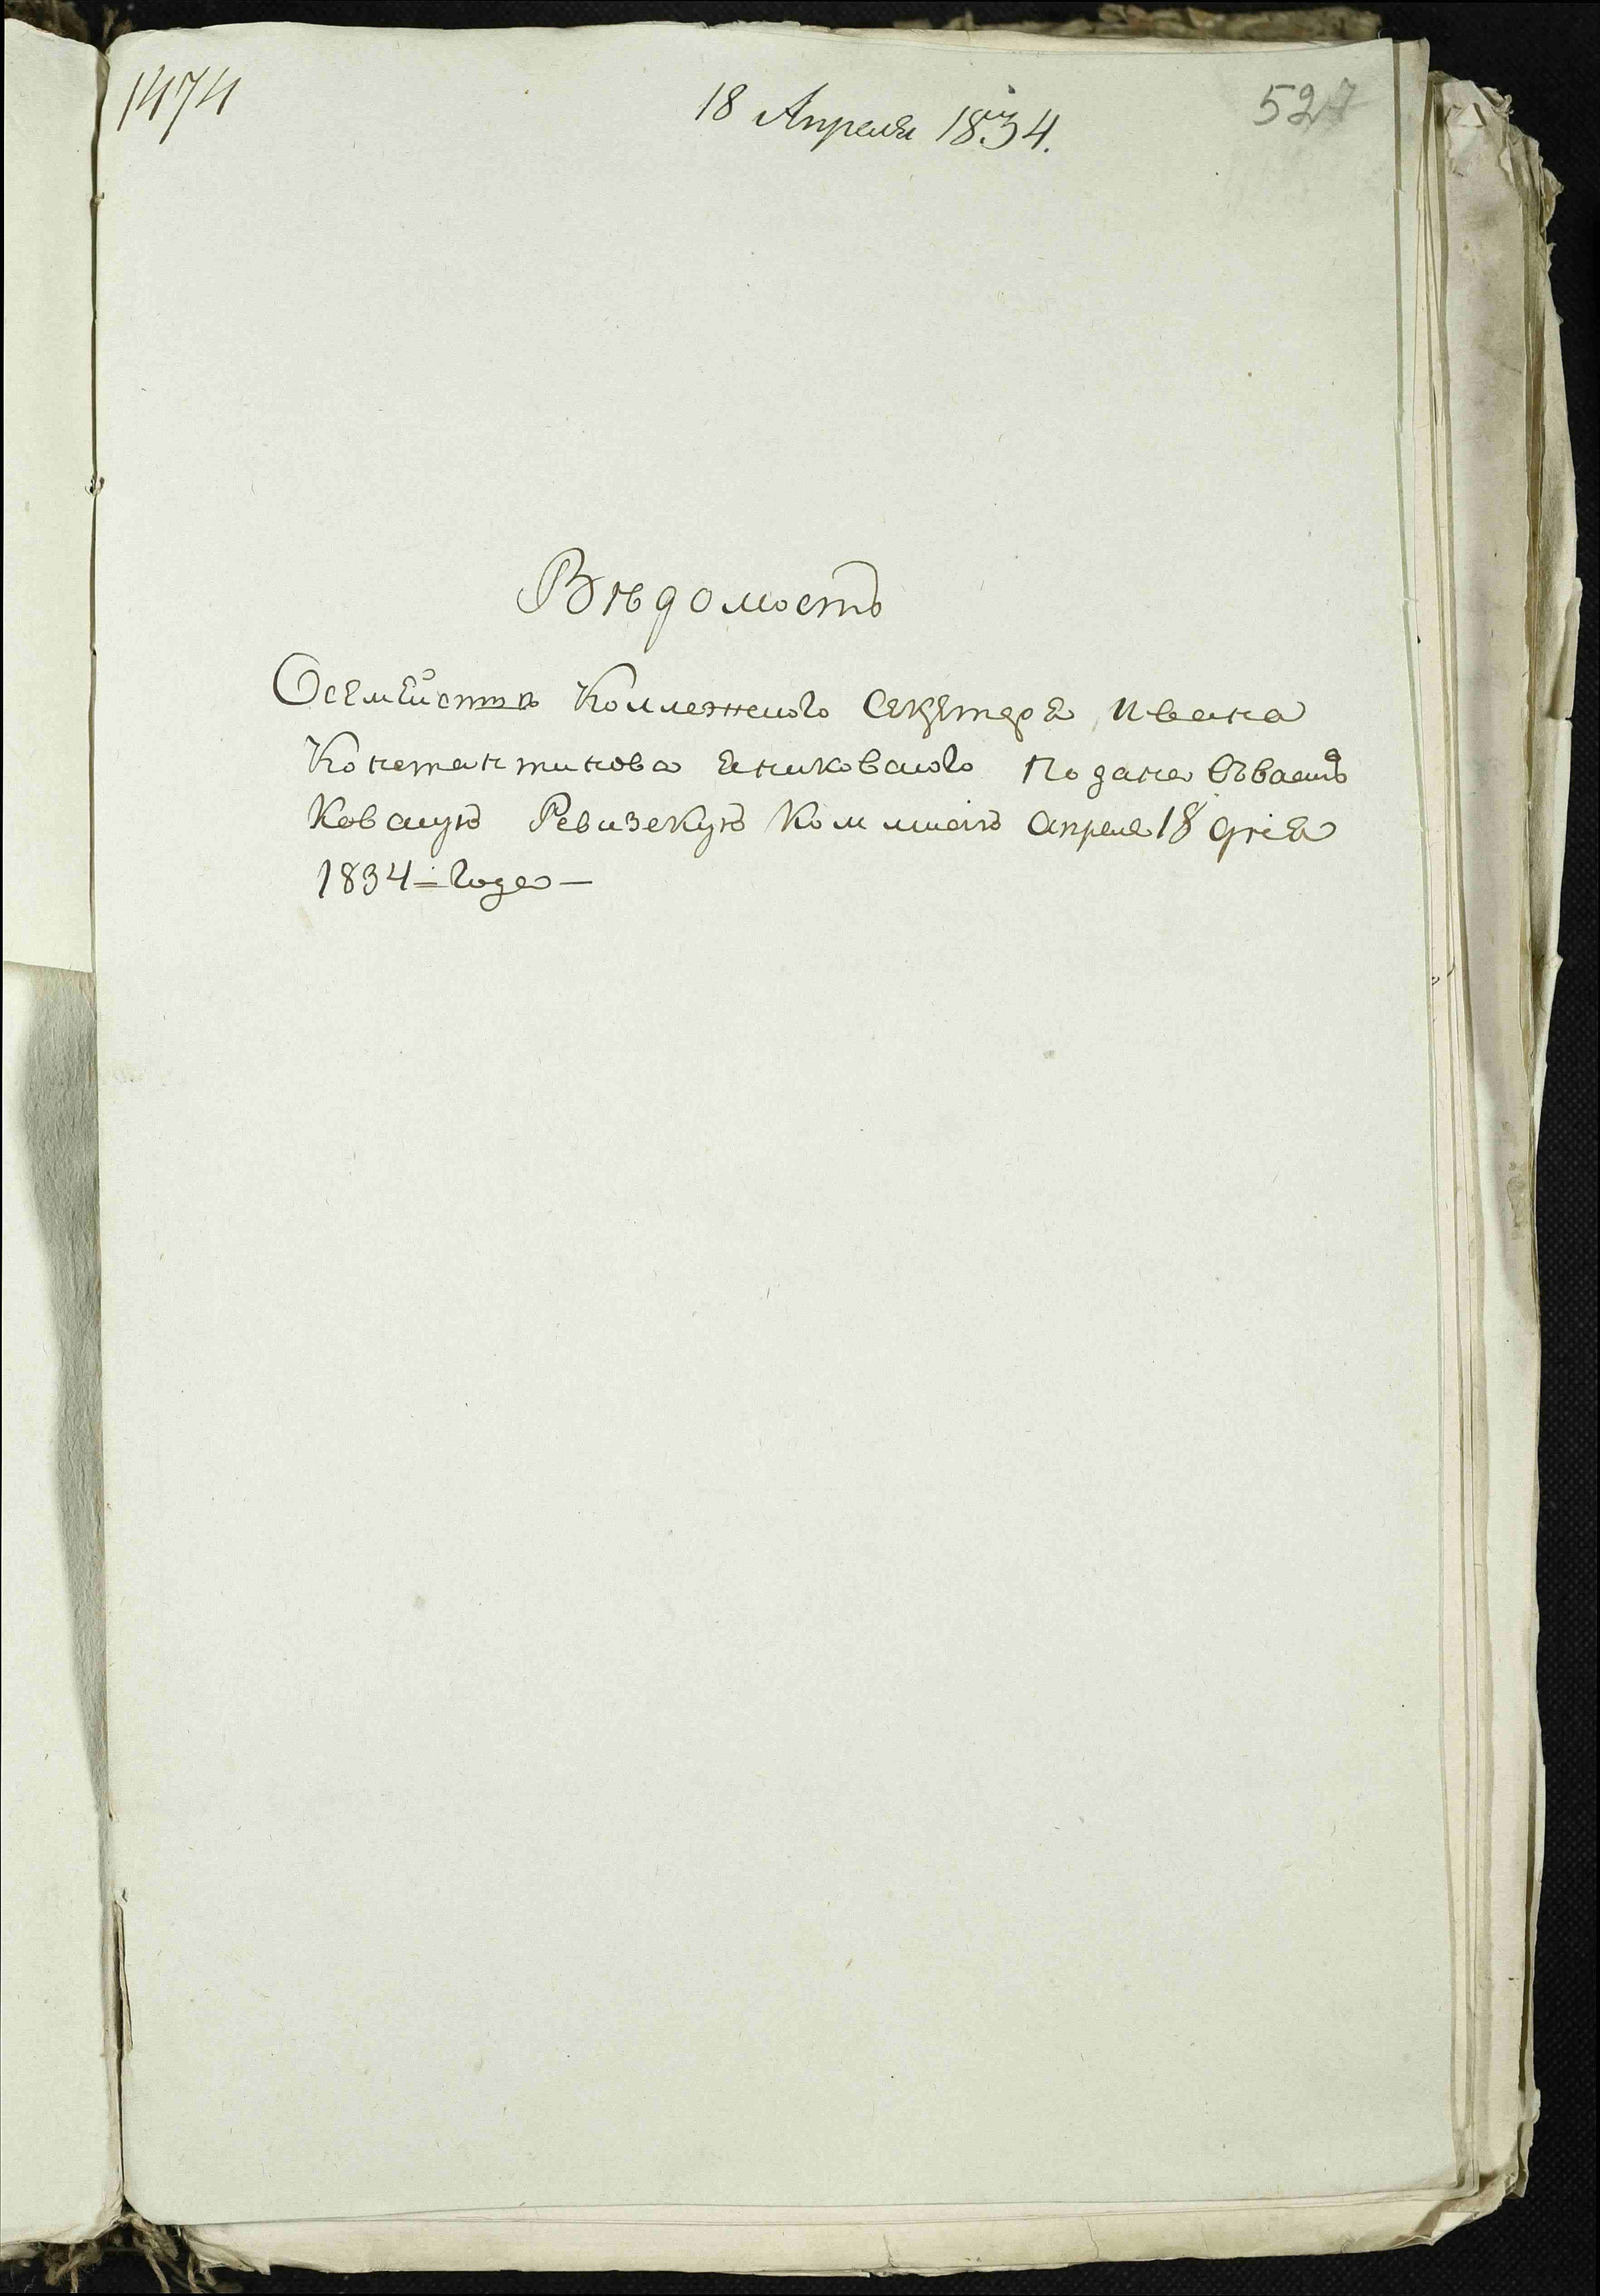 1474
18 Апреля 1834.
527
Вѣдомость
Осемействѣ Коллежскаго Секретаря Ивана
Константинова Яниковскаго Подана въ васил
ковскую Ревизскую Коммисію апреля 18 дня
1834 = года —